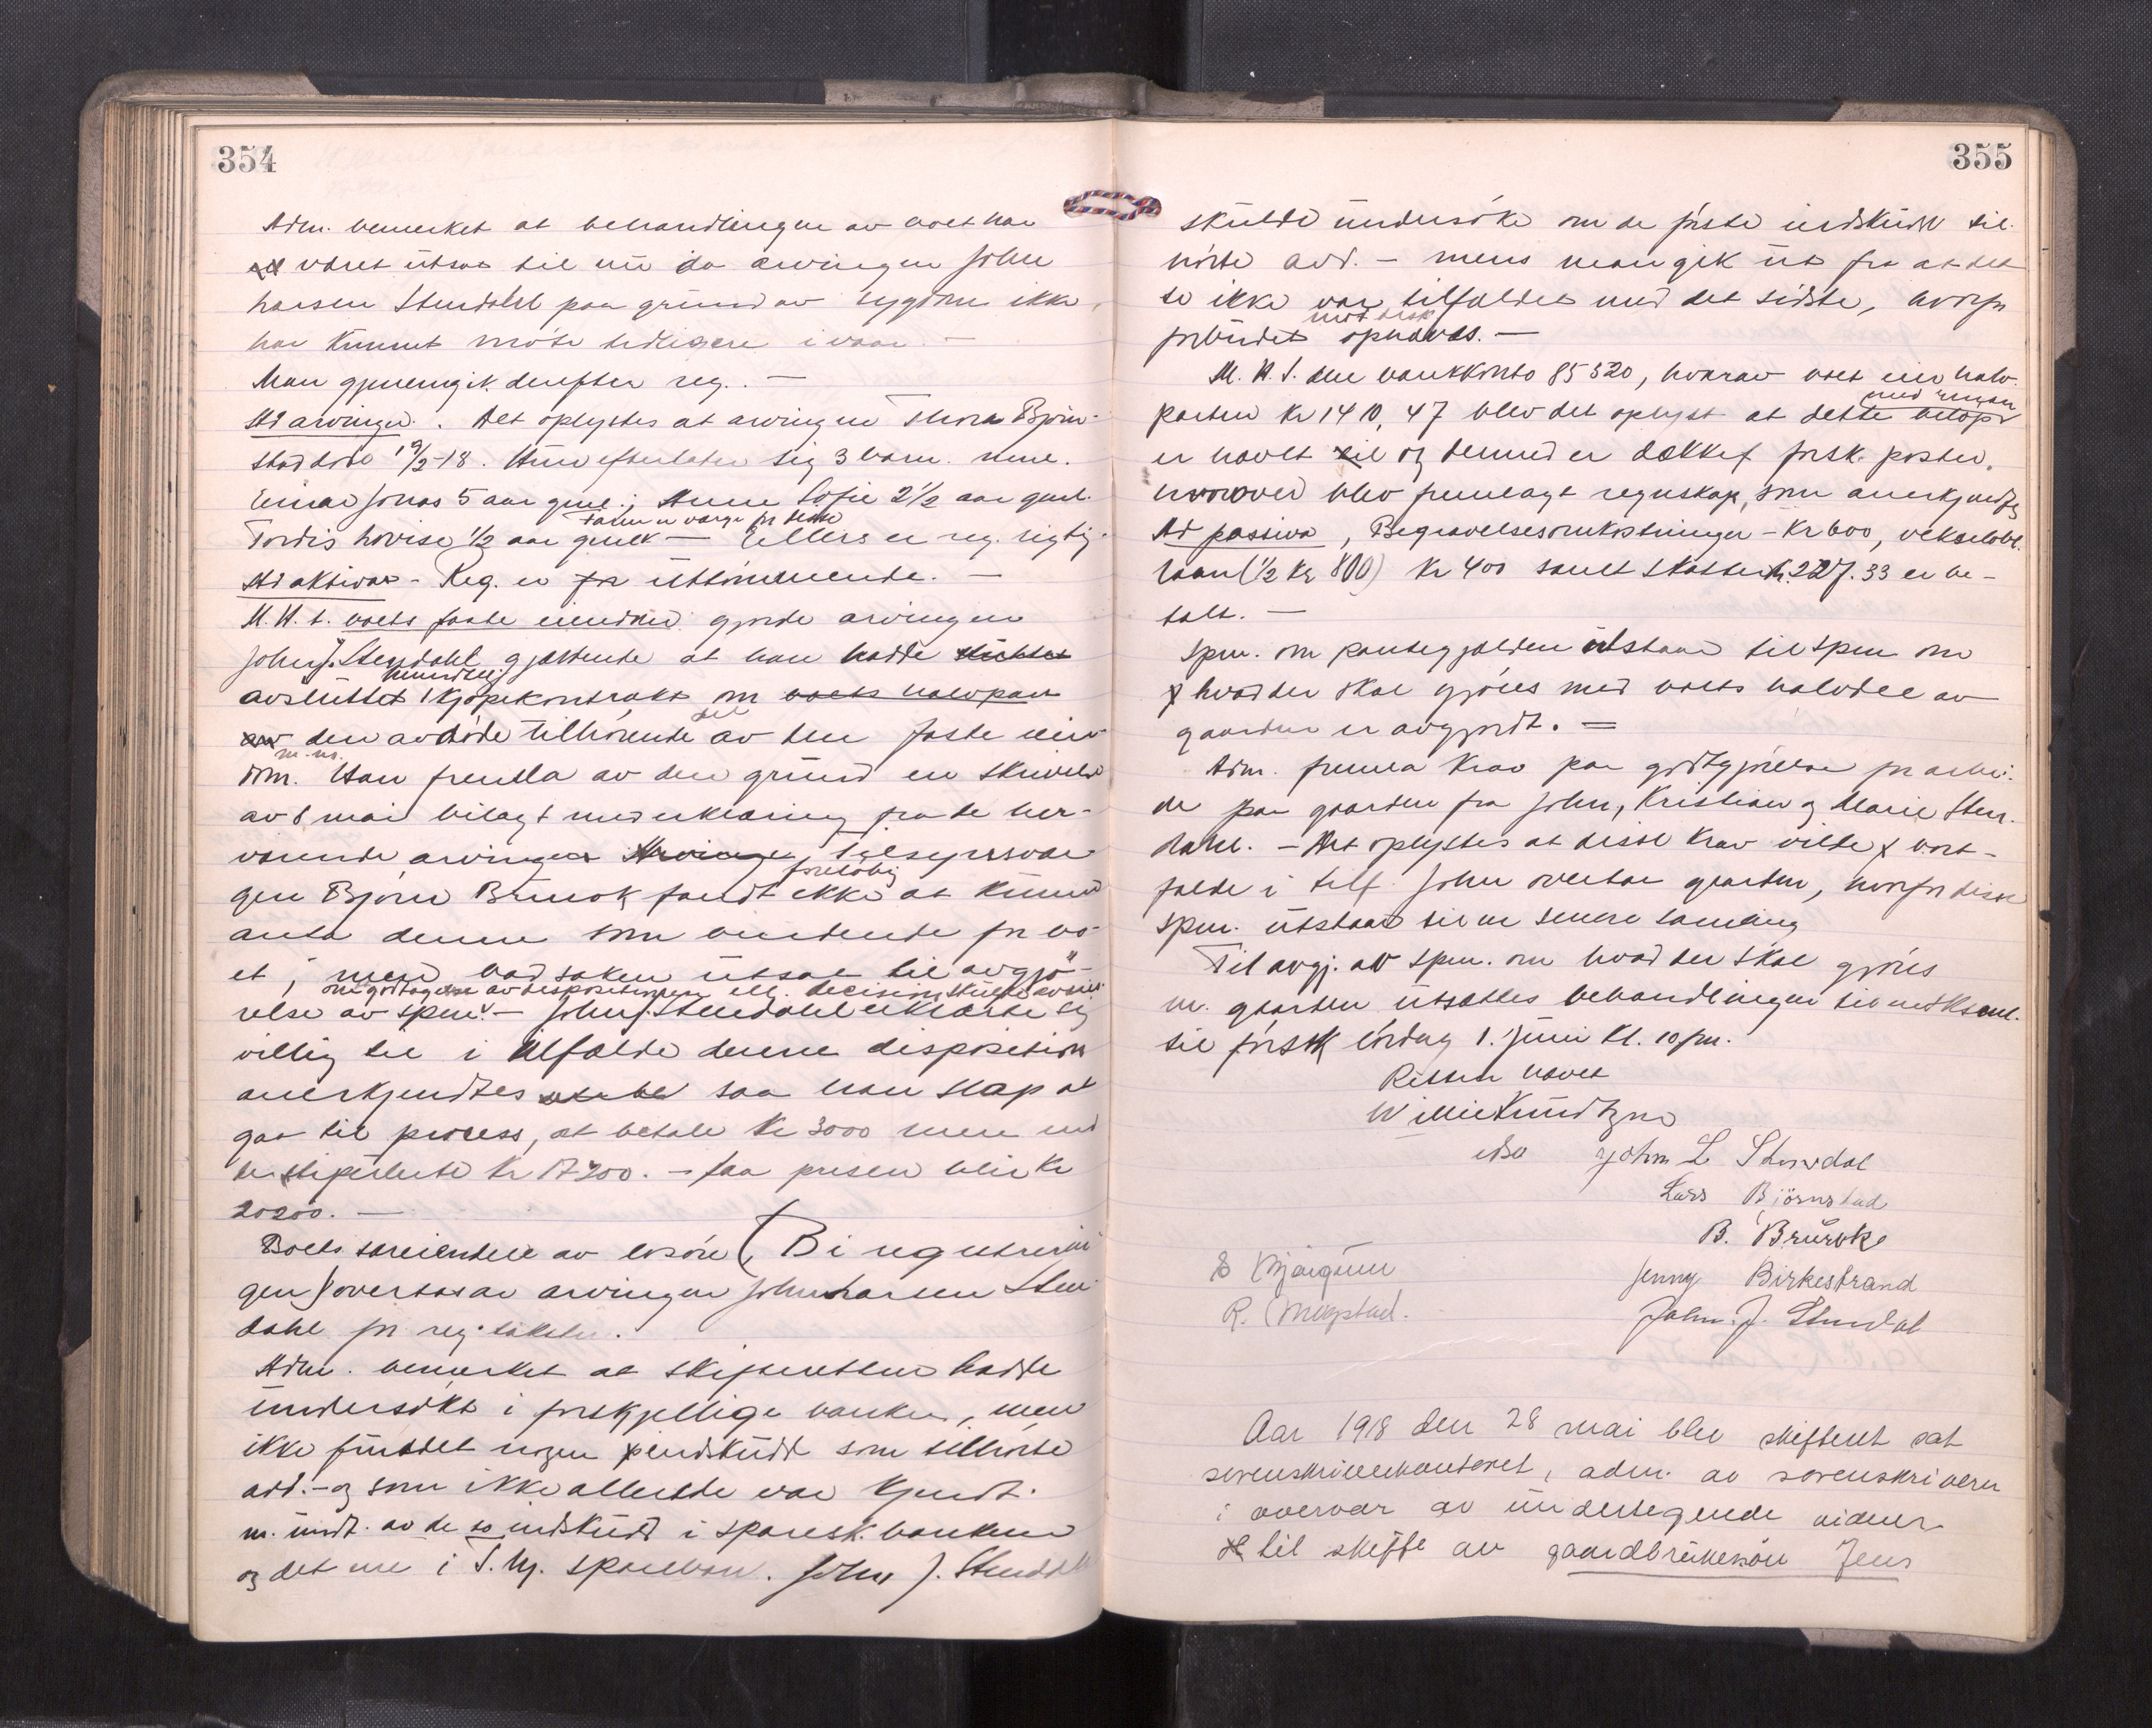 354
Adm. bemerket at behandlingen av boet har
været utsat til nu da arvingen John
hansen Stendahl paa grund av sygdom ikke
har kunnet møte tidligere i vaar. —
Man gjennemgik derefter reg. —
Ad arvinger. Det oplystes at arvingen Thora Bjørn-
stad døde 19/2-18. Hun efterlater sig 3 barn. nml.
Einar Jonas 5 aar gml.; Anne Sofie 2½ aar gml.
faren er verge for disse
Tordis Lovise ½ aar gmlk — Ellers er reg. rigtig.
Ad aktiva - Reg. er for uttømmende. —
M. H. t. boets faste eiendom gjorde arvingen
John J. Stendahl gjældende at han hadde sluttet
mundtlig
avsluttet kjøpekontrakt om boets halvpart
del
av den avdøde tilhørende av den faste eien-
m. m.
dom. Han fremla av den grund en skrivelse
av 8 mai bilagt med erklæring fra de her-
værende arvinger Arvinge, tilsynsvær-
foreløbig
gen Bjørn Brurok fandt ikke at kunne
anta denne som bindende for bo-
et, med hvad saken utsat til avgjø-
om godtagelse av dispositionen ell. decision skulde
relse av spm. — John J. Stendahl erklærte sig
villig til i tilfælde denne disposition
anerkjendtes saa han slap at
gaa til process, at betale kr 3000 mere end
de stipulerte kr 17200. — saa prisen blir kr
20200. —
Boets sareiendele av løsøre (B i registrerin-
gen) overtages av arvingen John hansen Sten-
dahl for reg. taksten.
Adm. bemerket at skifteretten hadde
undersøkt i forskjellige banker, men
ikke fundet nogen indskudd som tilhørte
avd. - og som ikke allerede var kjendt.
m. undt. av de to indskudd i sparesk. banken
og det ene i T. hj. sparebank. John J. Stendahl
355
skulde undersøke om de første indskudd til-
hørte avd. — mens man gik ut fra at det
te ikke var tilfældet med det sidste, hvorfor
mot besk
forbudet ophæves. —
M. H. t. den bankkonto 85320, hvorav boet eier halv-
med renter
parten kr 1410,47 blev det oplyst at dette beløp
er hævet til og dermed er dækket forsk. poster,
hvorover blev fremlagt regnskap, som anerkjendtes
Ad passiva, Begravelsesomkostninger - kr 600, vekselobl.
laan (½ kr 800) kr 400 samt skatter kr. 227.33 er be-
talt. —
Spm. om pantegjælden utstaar til spm om
hvad der skal gjøres med boets halvdel av
gaarden er avgjordt. =
Adm. fremla krav paa godtgjørelse for arbei-
de paa gaarden fra John, Kristian og Marie Sten-
dahl. — Det oplystes at disse krav vilde bort-
falde i tilf. John overtar gaarden, hvorfor disse
spm. utstaar til en senere samling
Til avgj. av spm. om hvad der skal gjøres
m. gaarden utsættes behandlingen til
til førstk lørdag 1. juni kl. 10 fm.
Retten hævet
Willie Knudtzon
John L Stendal
Lars Bjørnstad
B. Brurok
E Mjøigum
Jenny Birkestrand
R. Megstad.
John. J. Stendal
Aar 1918 den 28 mai blev skifteret sat
sorenskriverkontoret, adm. av sorenskriveren
i overvær av undertegnede vidner
til skifte av gaardbrukersøn Jens